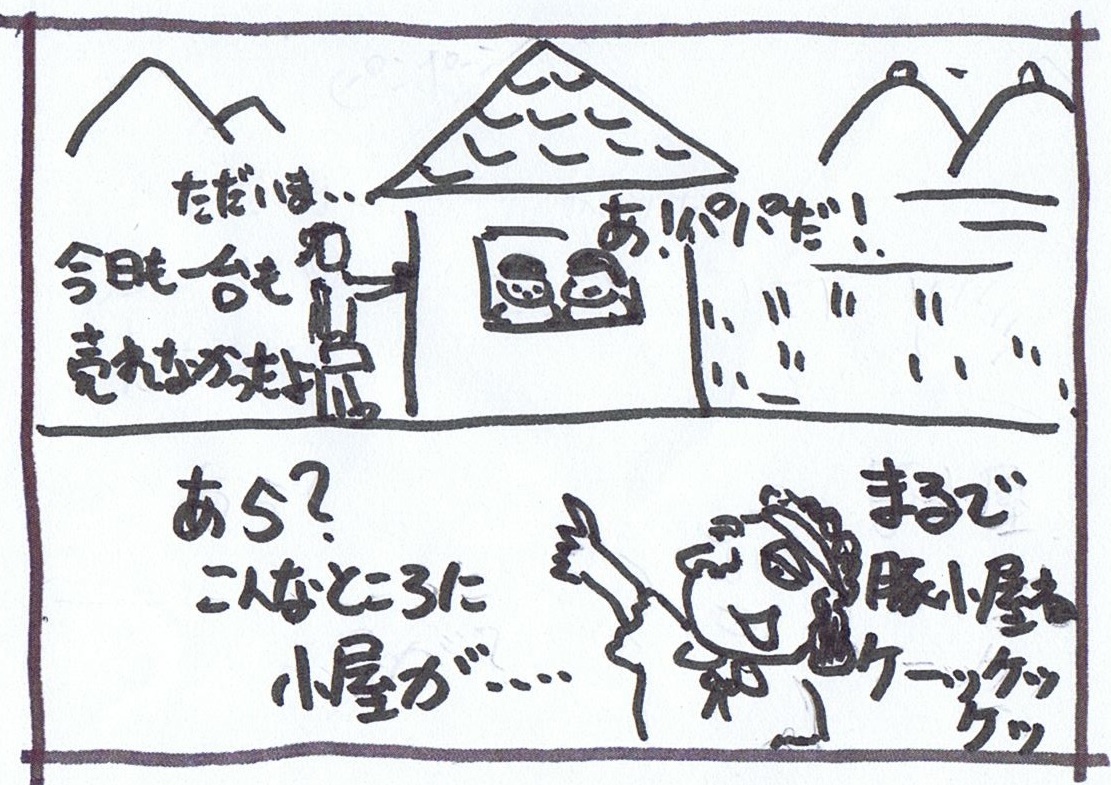 ただいま‥
今日も一台も
売れなかったよ
あ!パパだ!
あら?
こんなところに
小屋が‥‥
まるで
豚小屋ネ
ケーッケッ
ケッ